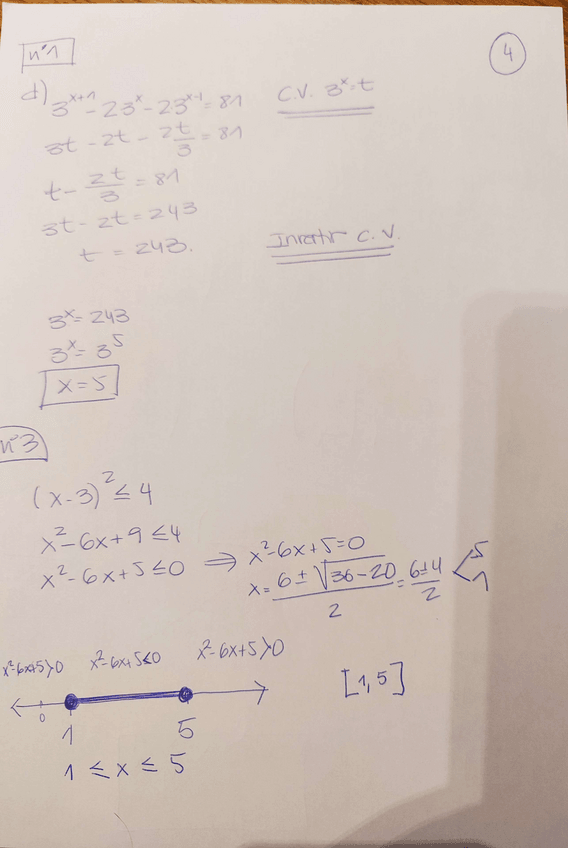 nº1
4
d) 3^(x+1) - 2·3^x - 2·3^(x-1) = 81 C.V. 3^x = t
3t - 2t - 2t/3 = 81
t - 2t/3 = 81
3t - 2t = 243
t = 243. Invertir C.V.
3^x = 243
3^x = 3^5
x = 5
nº3
(x-3)^2 ≤ 4
x^2 - 6x + 9 ≤ 4
x^2 - 6x + 5 ≤ 0 ⇒ x^2 - 6x + 5 = 0
x = (6 ± √(36-20))/2 = (6±4)/2 < 5
1
x^2-6x+5>0 x^2-6x+5≤0 x^2-6x+5>0
0
[1,5]
1 5
1 ≤ x ≤ 5